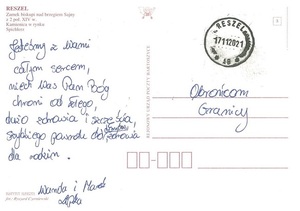 RESZEL
Zamek biskupi nad brzegiem Sajny
z 2 poł. XIV w.
Kamienica w rynku
Spichlerz
Jesteśmy z Wami
całym sercem,
niech Was Pan Bóg
chroni od złego,
dużo zdrowia i szczęścia,
szybkiego powrotu do zdrowia
dla rodzin.
Wanda i Marek
RESZEL
17112021
Obrońcom
Granicy